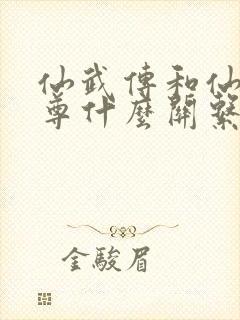 仙武傳和仙
尊什麼關繫
金駿眉